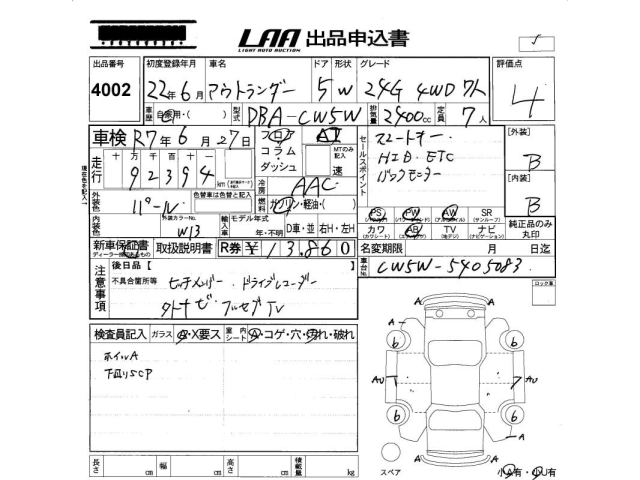 LAA 出品申込書
LIGHT AUTO AUCTION
出品番号 初度登録年月 車名 ドア 形状 グレード 評価点
4002 22年6月 アウトランダー 5 W 24G 4WD 7人 4
車歴 自家用・( ) 型式 DBA-CW5W 排気量 2400cc 定員 7人
車検 R7年6月27日 フロア AT セールスポイント スマートキー・ [外装]
コラム・ MTのみ記入 HID・ETC B
走行 十万 万 千 百 十 一 ダッシュ 速 バックモニター
92394 km 冷房 AAC [内装]
外装色 パール 色替車は色替と記入 燃料 ガソリン・軽油・( ) PS PW AW SR B
(サンルーフ)
内装色 外装カラーNo. W13 輸入車 モデル年式 カワ AB TV ナビ 純正品のみ丸印
年・不明 D車・並 右H・左H (カワシート) (地デジ) (ナビゲーション)
新車保証書 取扱説明書 R券 ¥13,860 名変期限 月 日迄
ディーラー押印のあるもの
注意事項 後日品【 】 車台No. CW5W-5405083
不具合箇所等 セッチメンバー・ドライブレコーダー ロック車
外ナビ・フルセグTV
検査員記入 ガラス A・X要ス 室内 シート A・コゲ・穴・汚れ・破れ
ホイルA
下廻りSCP
A A
A
6 6
AU 7 AU
6 6
A
A A
長さ cm 幅 cm 高さ cm 積載量 kg スペア 小A有・小U有
現在色を記入